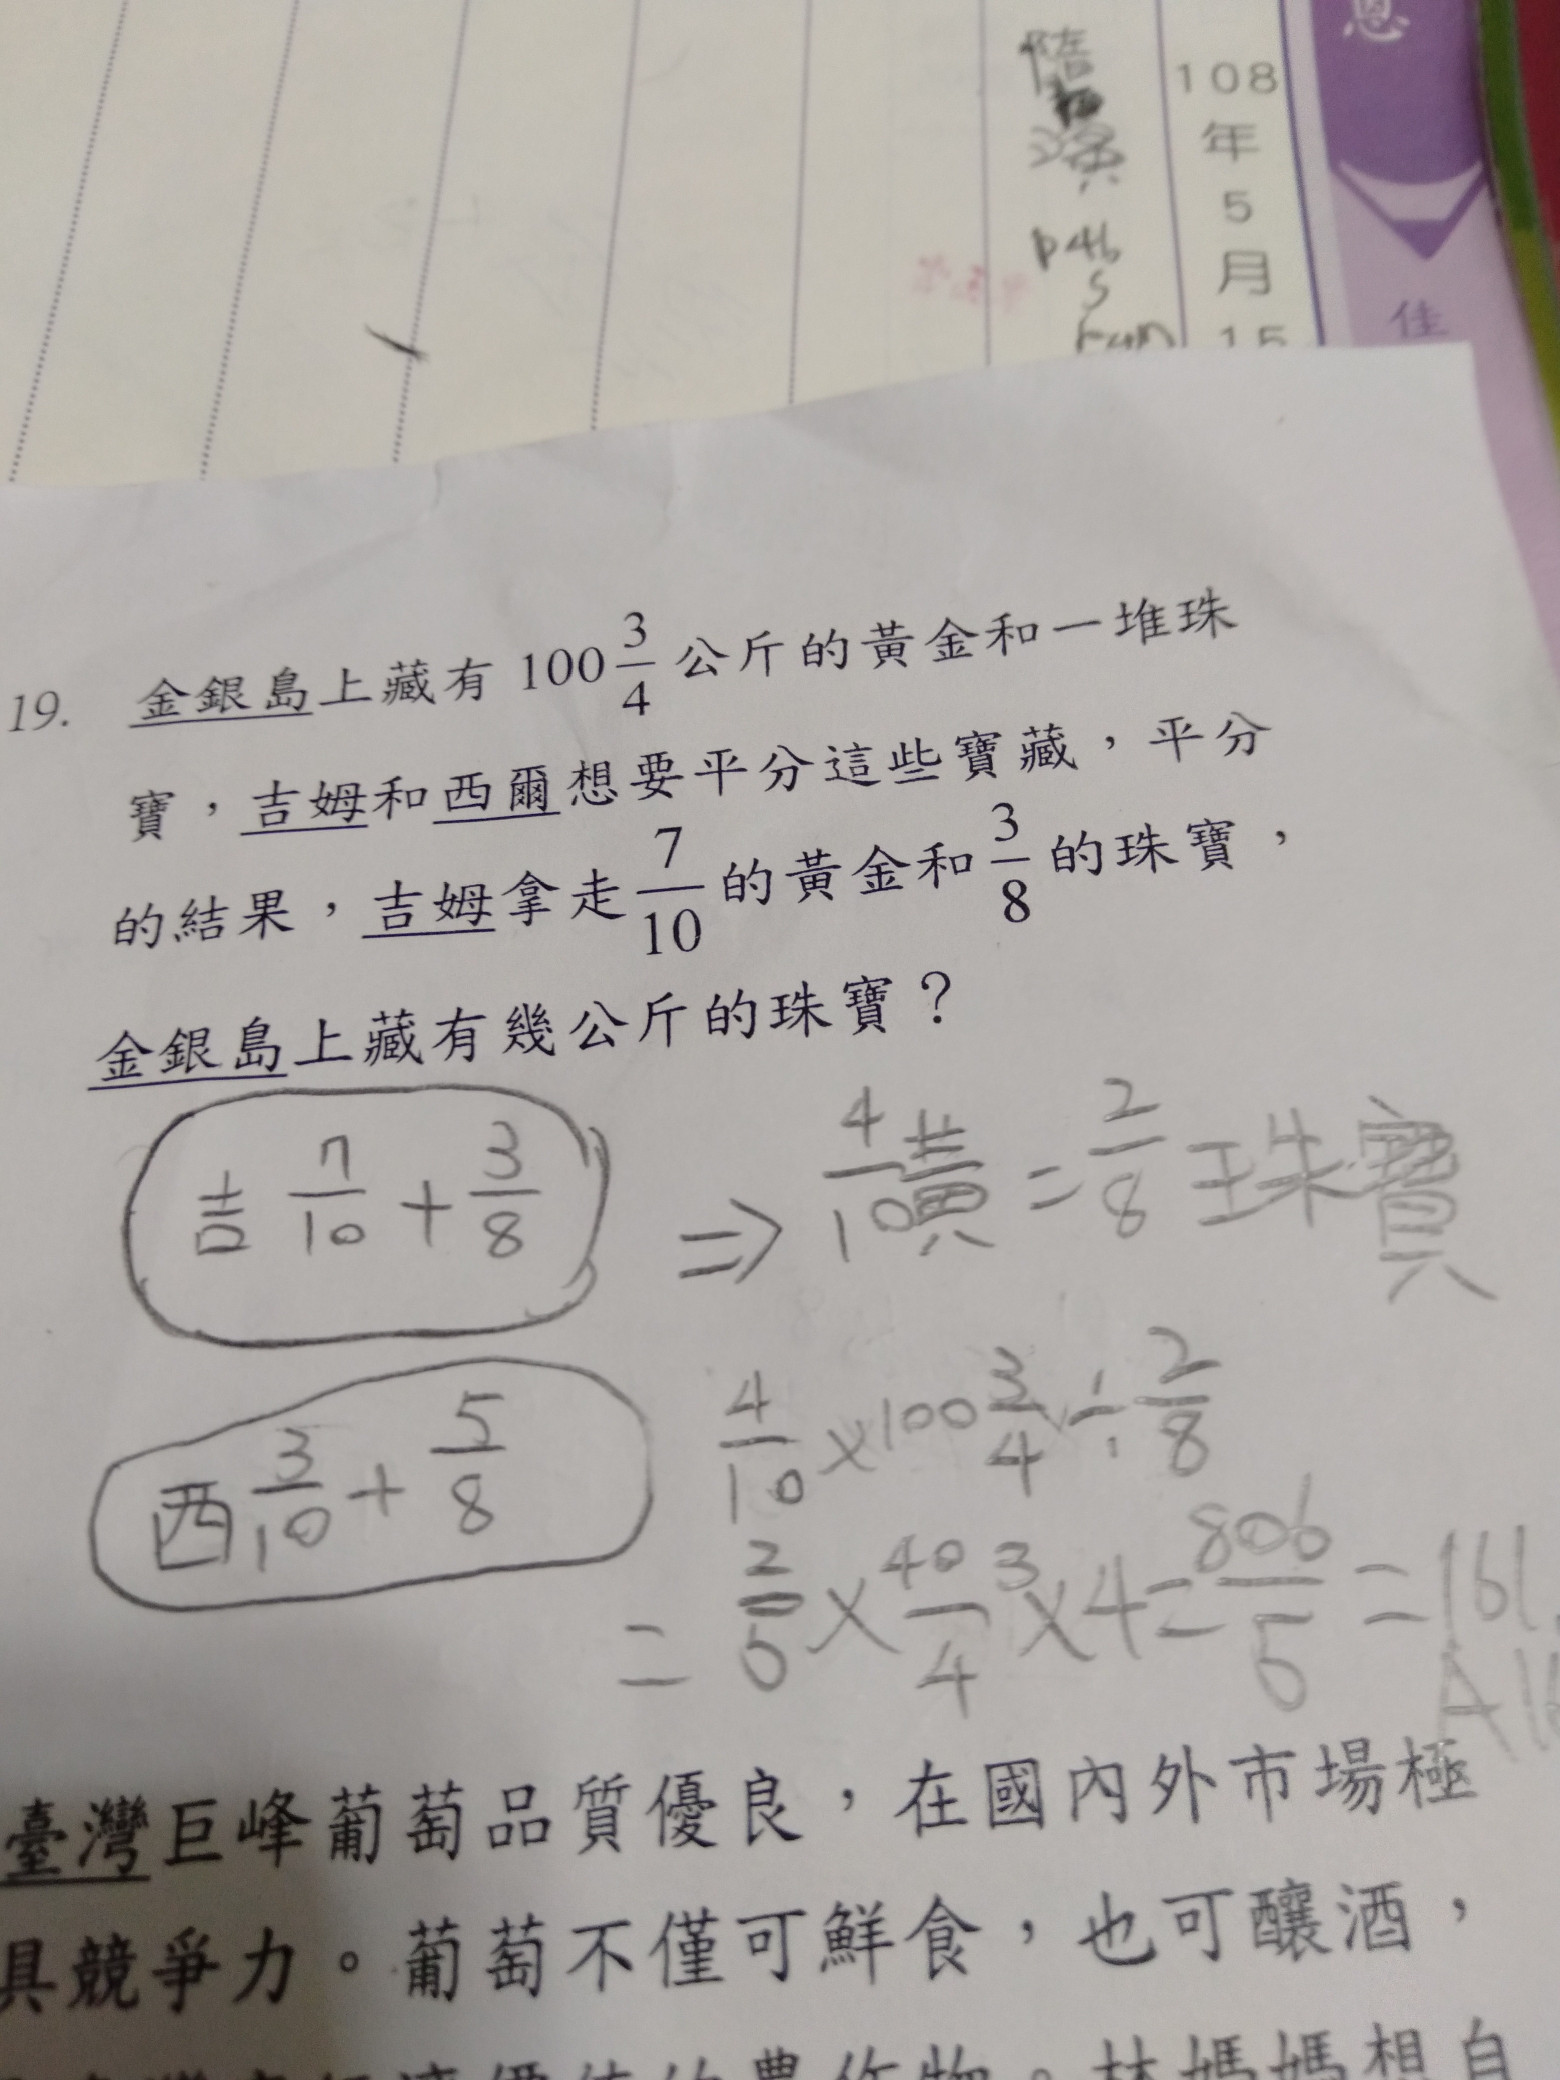 恩
108年5月15
佳
p46
run
19. 金銀島上藏有 100 3/4 公斤的黃金和一堆珠
寶，吉姆和西爾想要平分這些寶藏，平分
的結果，吉姆拿走 7/10 的黃金和 3/8 的珠寶，
金銀島上藏有幾公斤的珠寶？
吉 7/10 + 3/8
⇒ 4/10 黃 = 2/8 珠寶
西 3/10 + 5/8
4/10 × 100 3/4 ÷ 2/8
= 2/5 × 403/4 × 4 = 806/5 = 161.
A 16
臺灣巨峰葡萄品質優良，在國內外市場極
具競爭力。葡萄不僅可鮮食，也可釀酒，
濟價值的農作物。林媽媽想自